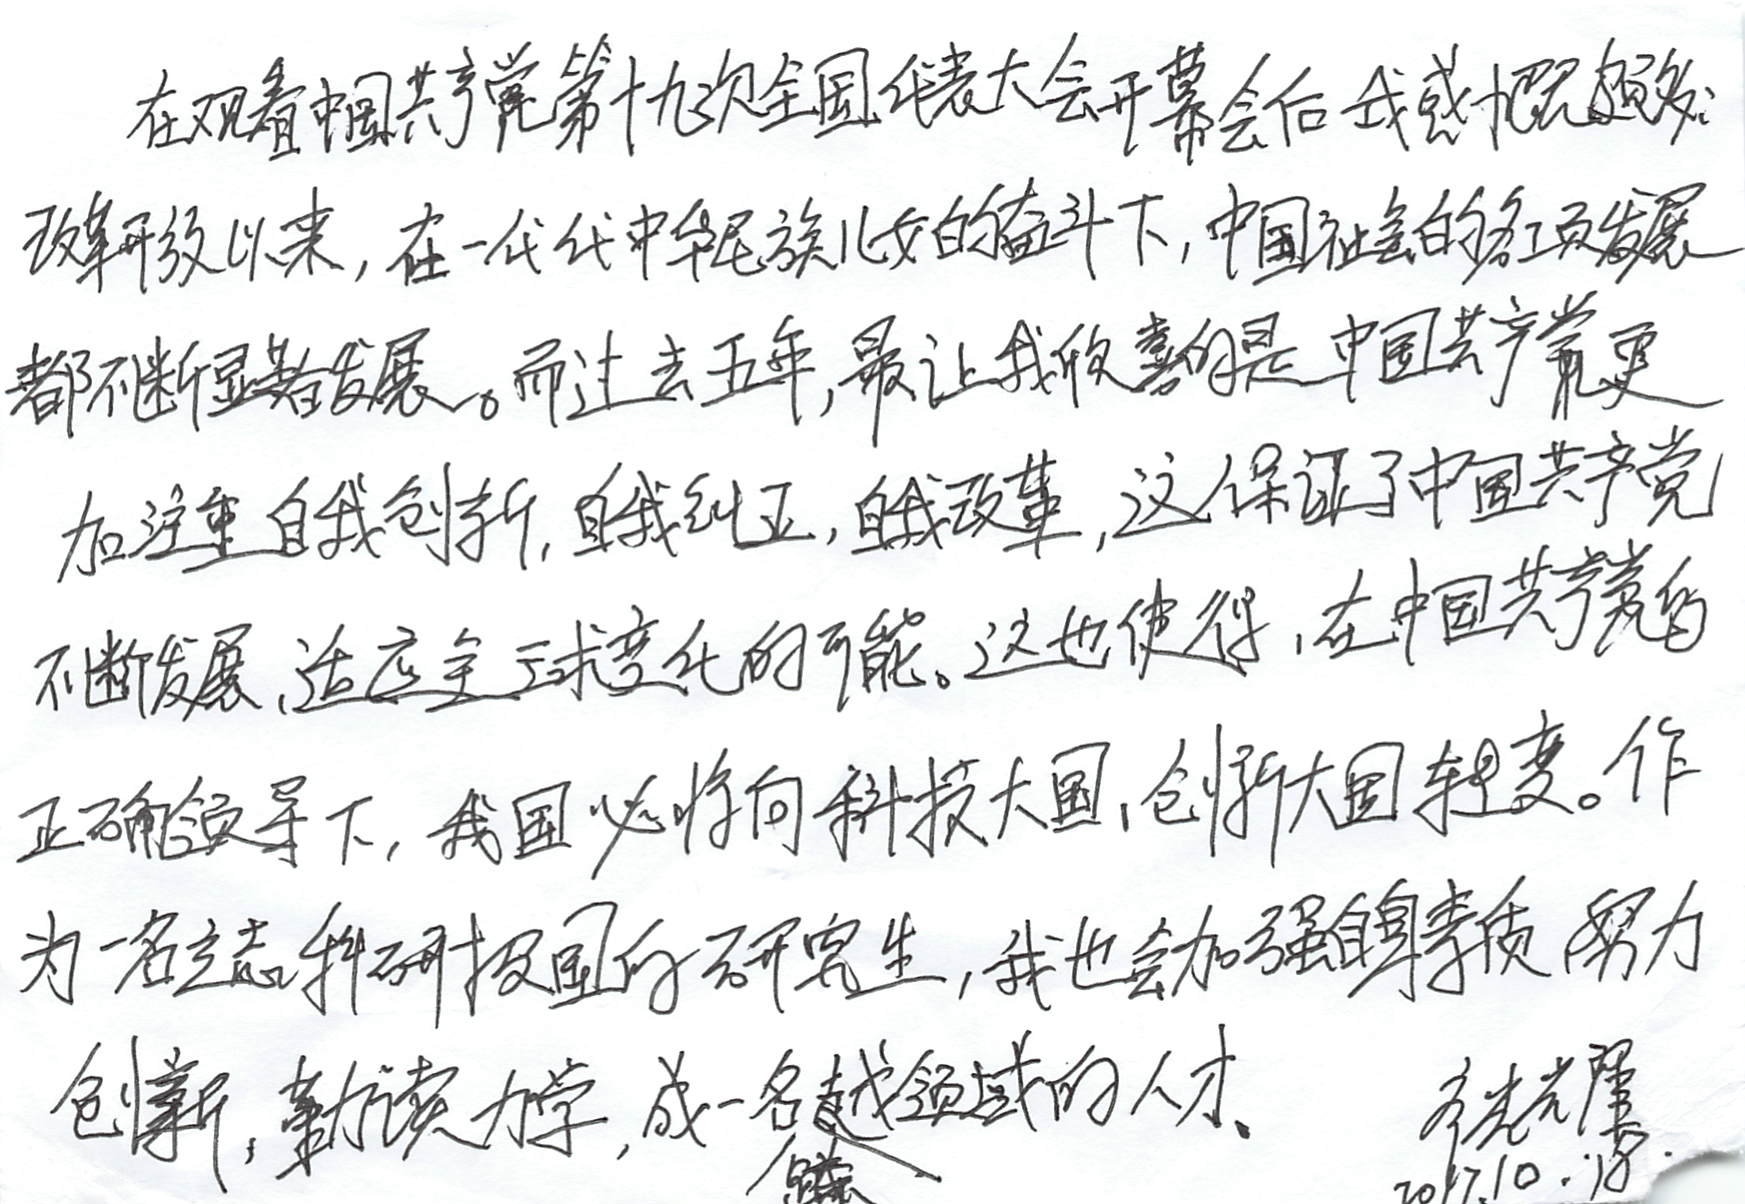 在观看中国共产党第十九次全国代表大会开幕会后我感慨颇多:
改革开放以来,在一代代中华民族儿女的奋斗下,中国社会的各项发展
都不断显著发展。而过去五年,最让我欣喜的是中国共产党更
加注重自我创新,自我纠正,自我改革,这保证了中国共产党
不断发展、适应全球变化的可能。这也使得,在中国共产党的
正确领导下,我国必将向科技大国、创新大国转变。作
为一名立志科研报国的研究生,我也会加强自身素质努力
创新,勤读力学,成一名越领域的人才、
2017.10.18